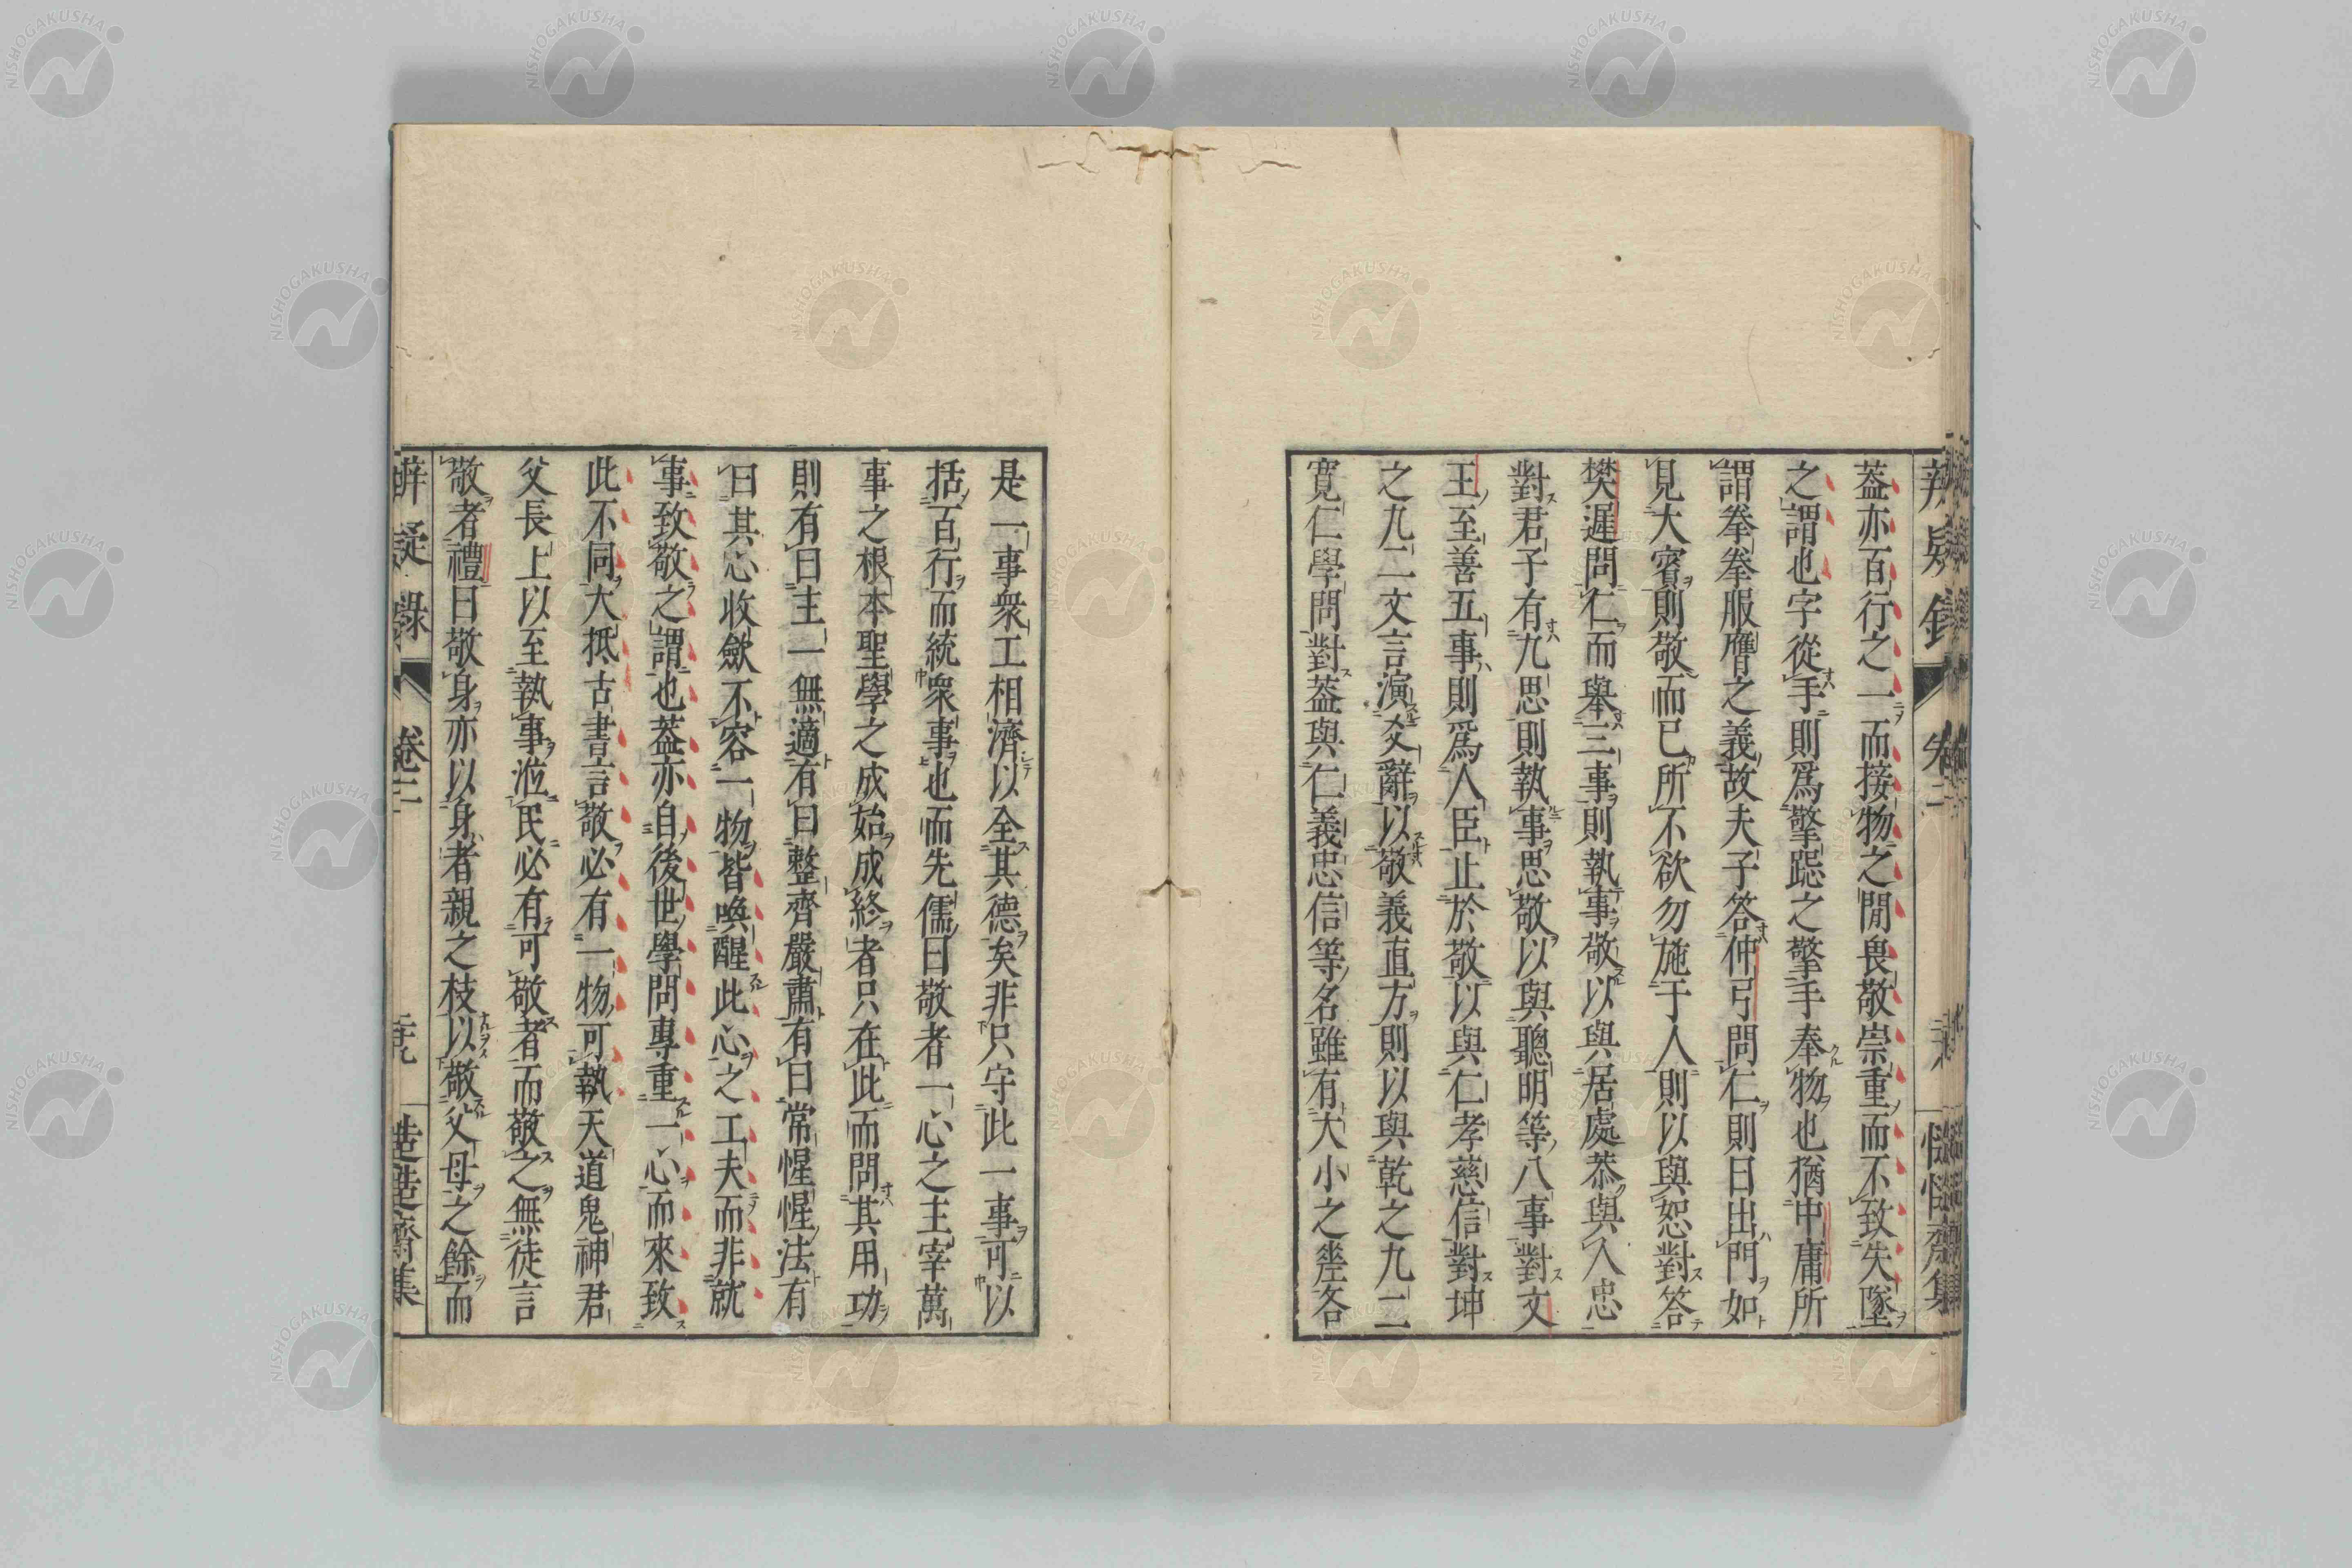 葢亦百行之一而接物之閒畏敬崇重而不致失墜
之謂也字從手則爲擎跽之擎手奉物也猶中庸所
謂拳拳服膺之義故夫子答仲弓問仁則曰出門如
見大賓則敬而已所不欲勿施于人則以與恕對答
樊遲問仁而舉三事則執事敬以與居處恭與人忠
對君子有九思則執事思敬以與聽明等八事對文
王至善五事則爲人臣止於敬以與仁孝慈信對坤
之九二文言演爻辭以敬義直方則以與乾之九二
寬仁學問對葢與仁義忠信等名雖有大小之差各
是一事衆工相濟以全其德矣非只守此一事可以
括百行而統衆事也而先儒曰敬者一心之主宰萬
事之根本聖學之成始成終者只在此而問其用功
則有曰主一無適有曰整齊嚴肅有曰常惺惺法有
曰其心收斂不容一物皆喚醒此心之工夫而非就
事致敬之謂也葢亦自後世學問專重一心而來致
此不同大抵古書言敬必有一物可執天道鬼神君
父長上以至執事涖民必有可敬者而敬之無徒言
敬者禮曰敬身亦以身者親之枝以敬父母之餘而
辨疑錄 卷三 慥慥齋集
NISHOGAKUSHA